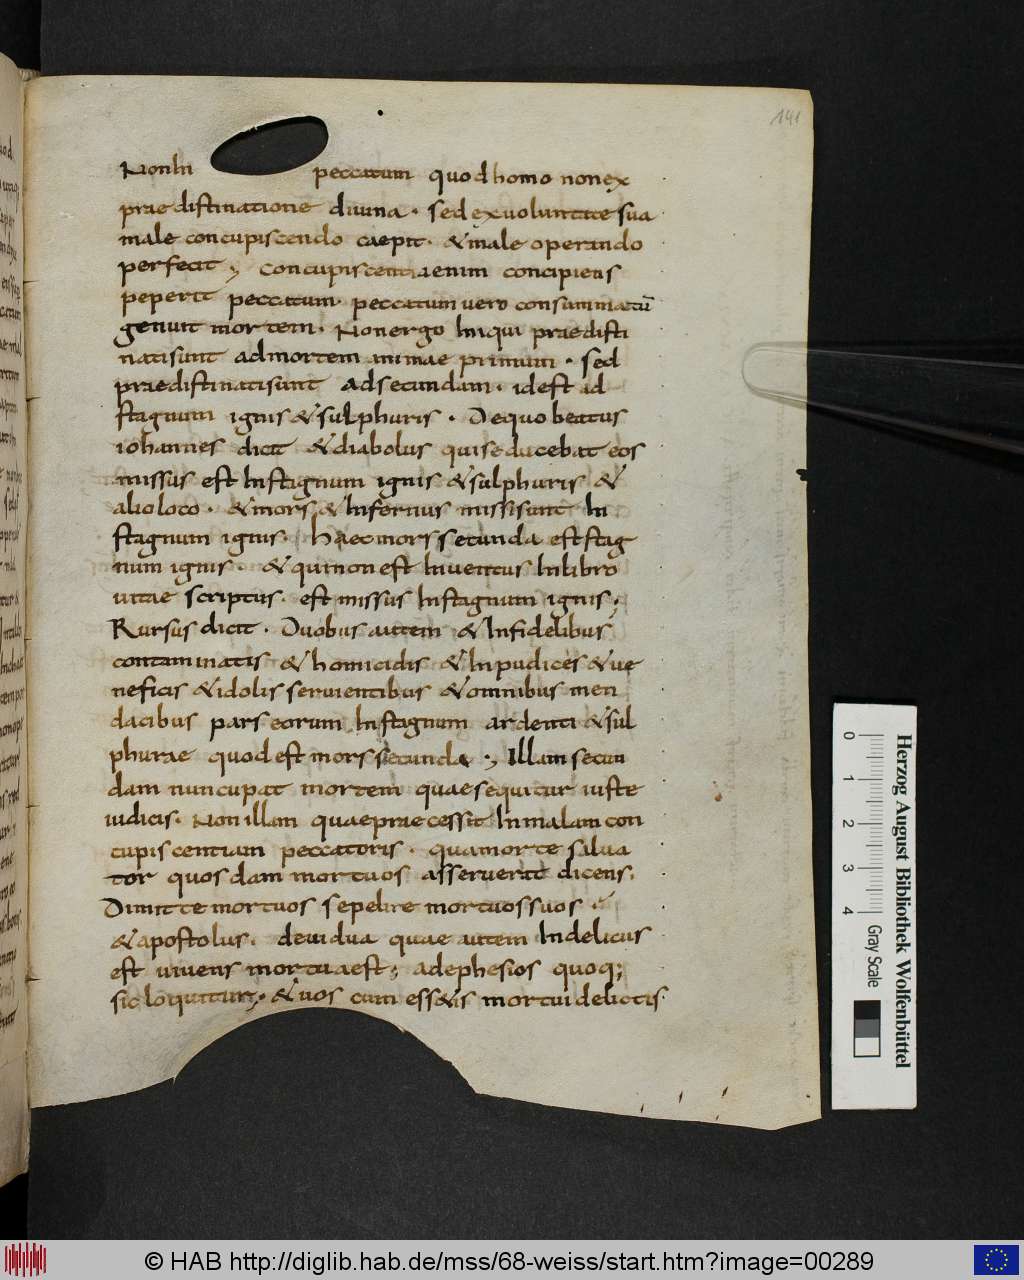 141
Non In peccatum quod homo non ex
praedistinatione diuina · sed ex uoluntate sua
male concupiscendo caepit · & male operando
perfecit ; concupiscentia enim concipiens
peperit peccatum · peccatum uero consummatū
genuit mortem · Non ergo Iniqui praedisti
nati sunt ad mortem animae primum · sed
praedistinati sunt ad secundam · id est ad
stagnum ignis & sulphuris · De quo beatus
iohannes dicit & diabolus qui seducebat eos
missus est In stagnum ignis & sulphuris &
alio loco · & mors & Infernus missi sunt In
stagnum ignis · Haec mors secunda est stag
num ignis · & qui non est Inuentus In libro
uitae scriptus · est missus In stagnum ignis ;
Rursus dicit · Duobus autem & Infidelibus
contaminatis & homicidis & Inpudices & ue
neficis & idolis seruientibus & omnibus men
dacibus pars eorum In stagnum ardenti & sul
phurae quod est mors secunda ; Illam secun
dam nuncupat mortem quae sequitur iuste
iudicis · Non illam quae praecessit In malam con
cupiscentiam peccatoris · qua morte salua
tor quosdam mortuos asseruerit dicens ·
Dimitte mortuos sepelire mortuos suos ·
& apostolus · de uidua quae autem In delicus
est uiuens mortua est ; ad ephesios quoq;
sic loquitur ; & uos cum ess&is mortui delictis
Herzog August Bibliothek Wolfenbüttel
0 1 2 3 4 Gray Scale
© HAB http://diglib.hab.de/mss/68-weiss/start.htm?image=00289